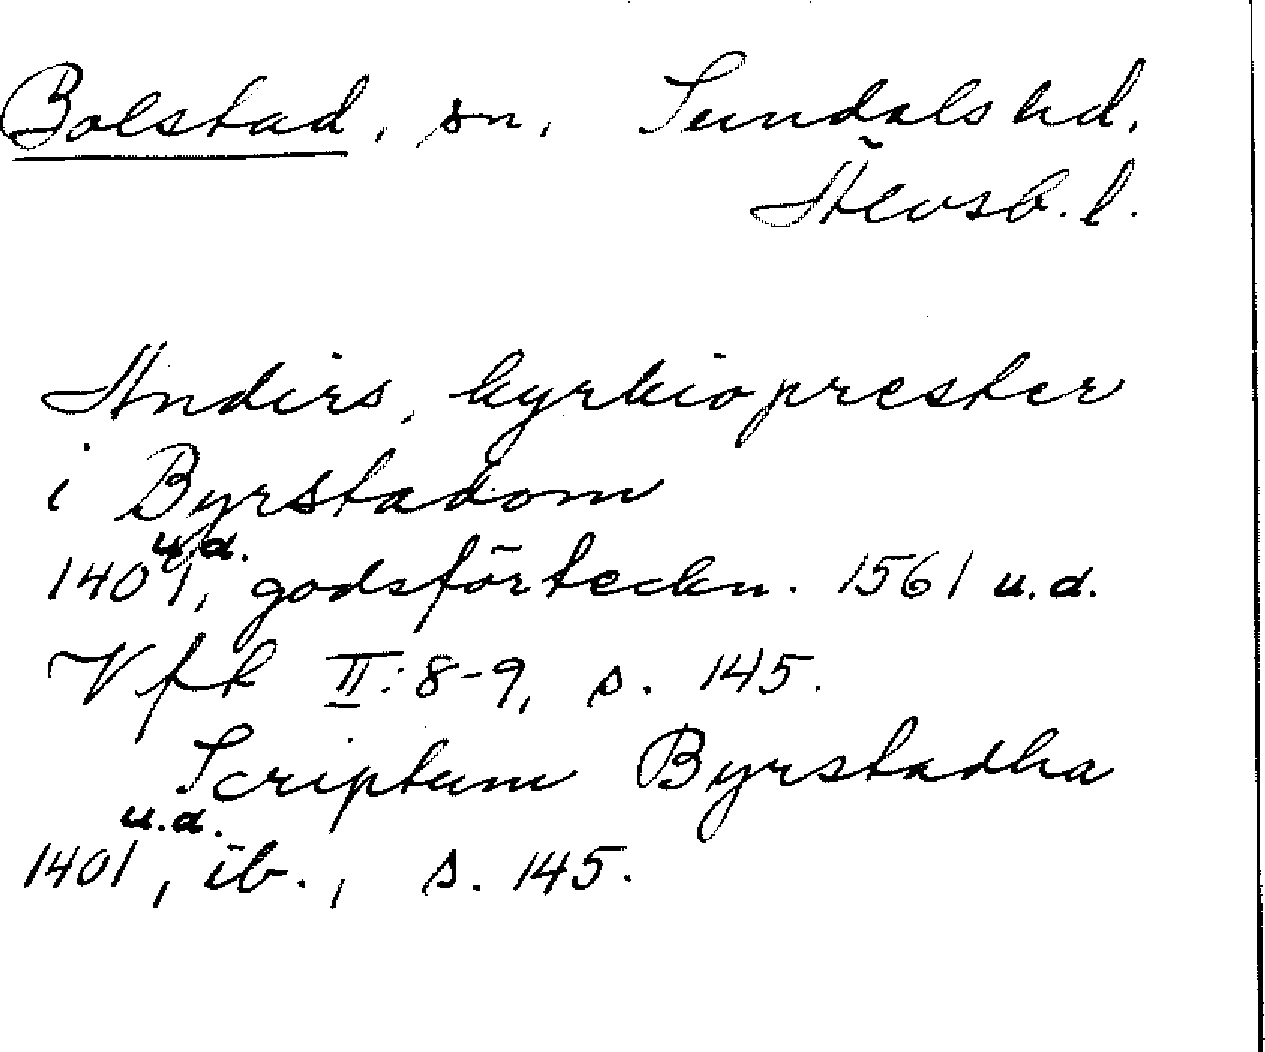 Bolstad, sn, Sundals hd,
Älvsb. l.
Anders, kyrkioprester
i Byrstadom
1401 u.d., godsförteckn. 1561 u.d.
Vfk II:8-9, s. 145.
Scriptum Byrstadha
1401 u.d., ib., s. 145.